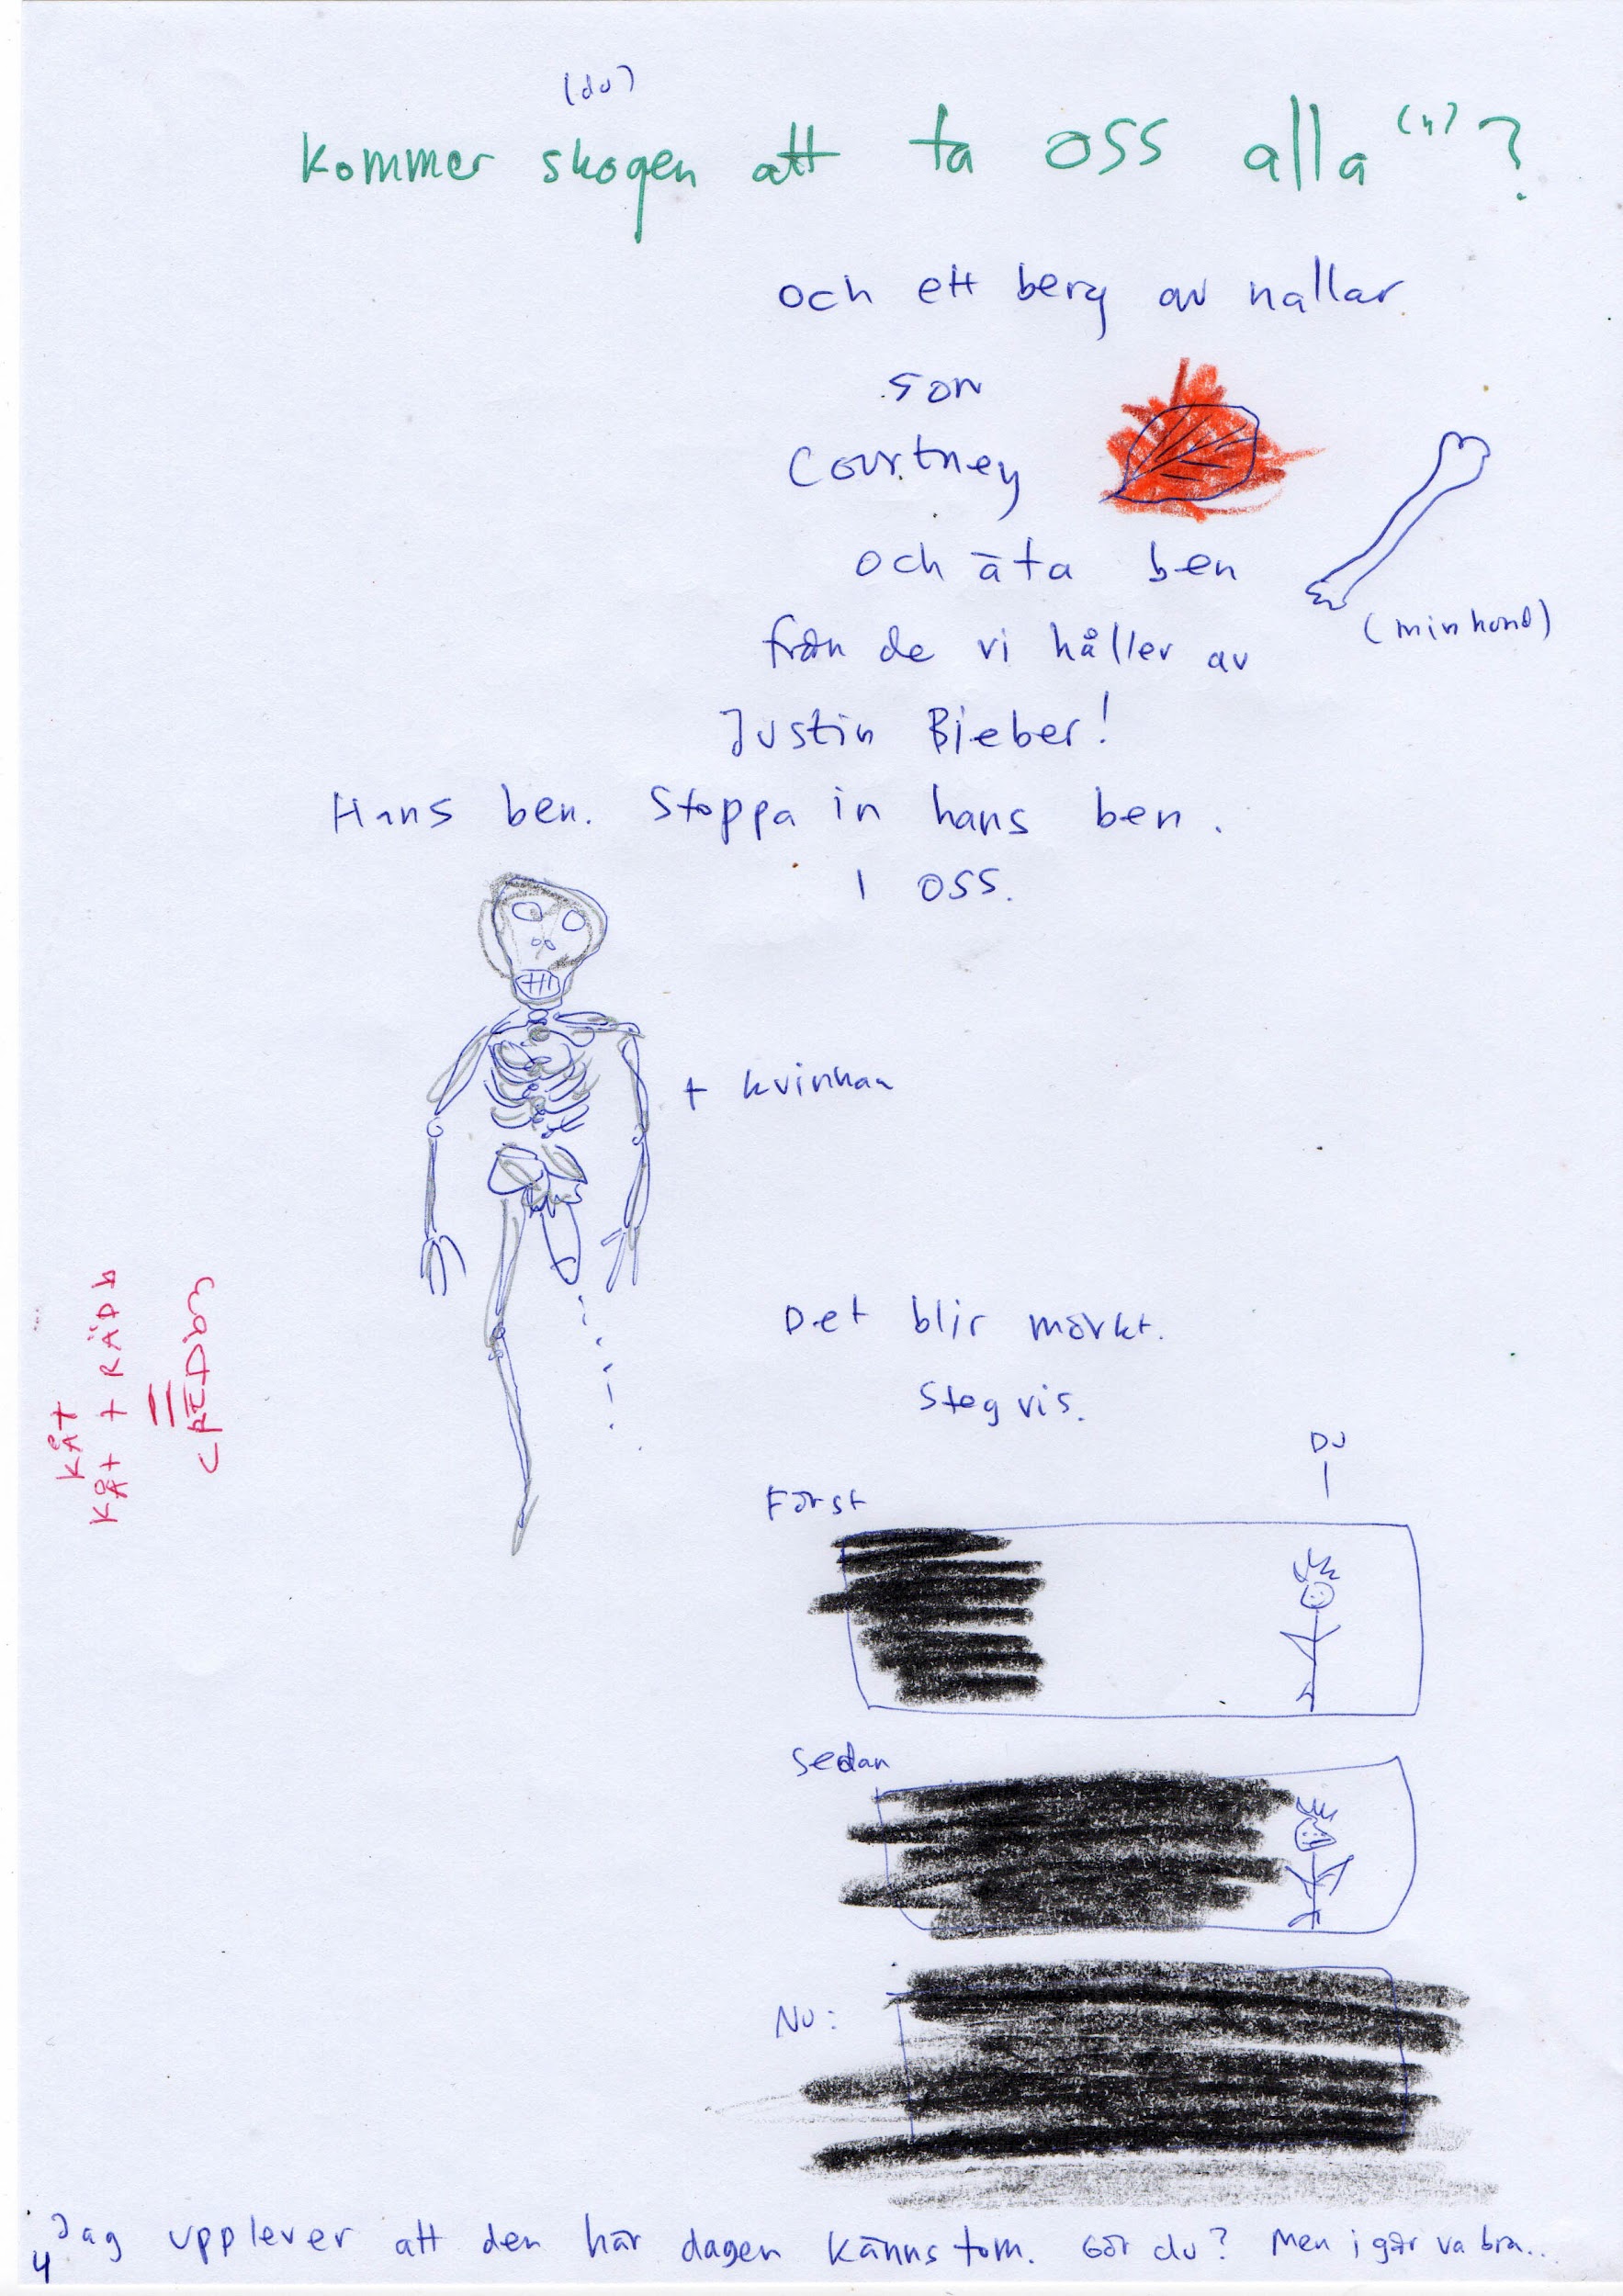 (du)
Kommer skogen att ta oss alla (n)?
och ett berg av nallar
som
Courtney
och äta ben
(min hund)
från de vi håller av
Justin Bieber!
Hans ben. Stoppa in hans ben.
I oss.
+ kvinnan
KÅT
KÅT + RÄDD
=
Det blir mörkt.
Stegvis.
DU
Först
Sedan
NU:
Jag upplever att den här dagen känns tom. Gör du? Men igår va bra...
4